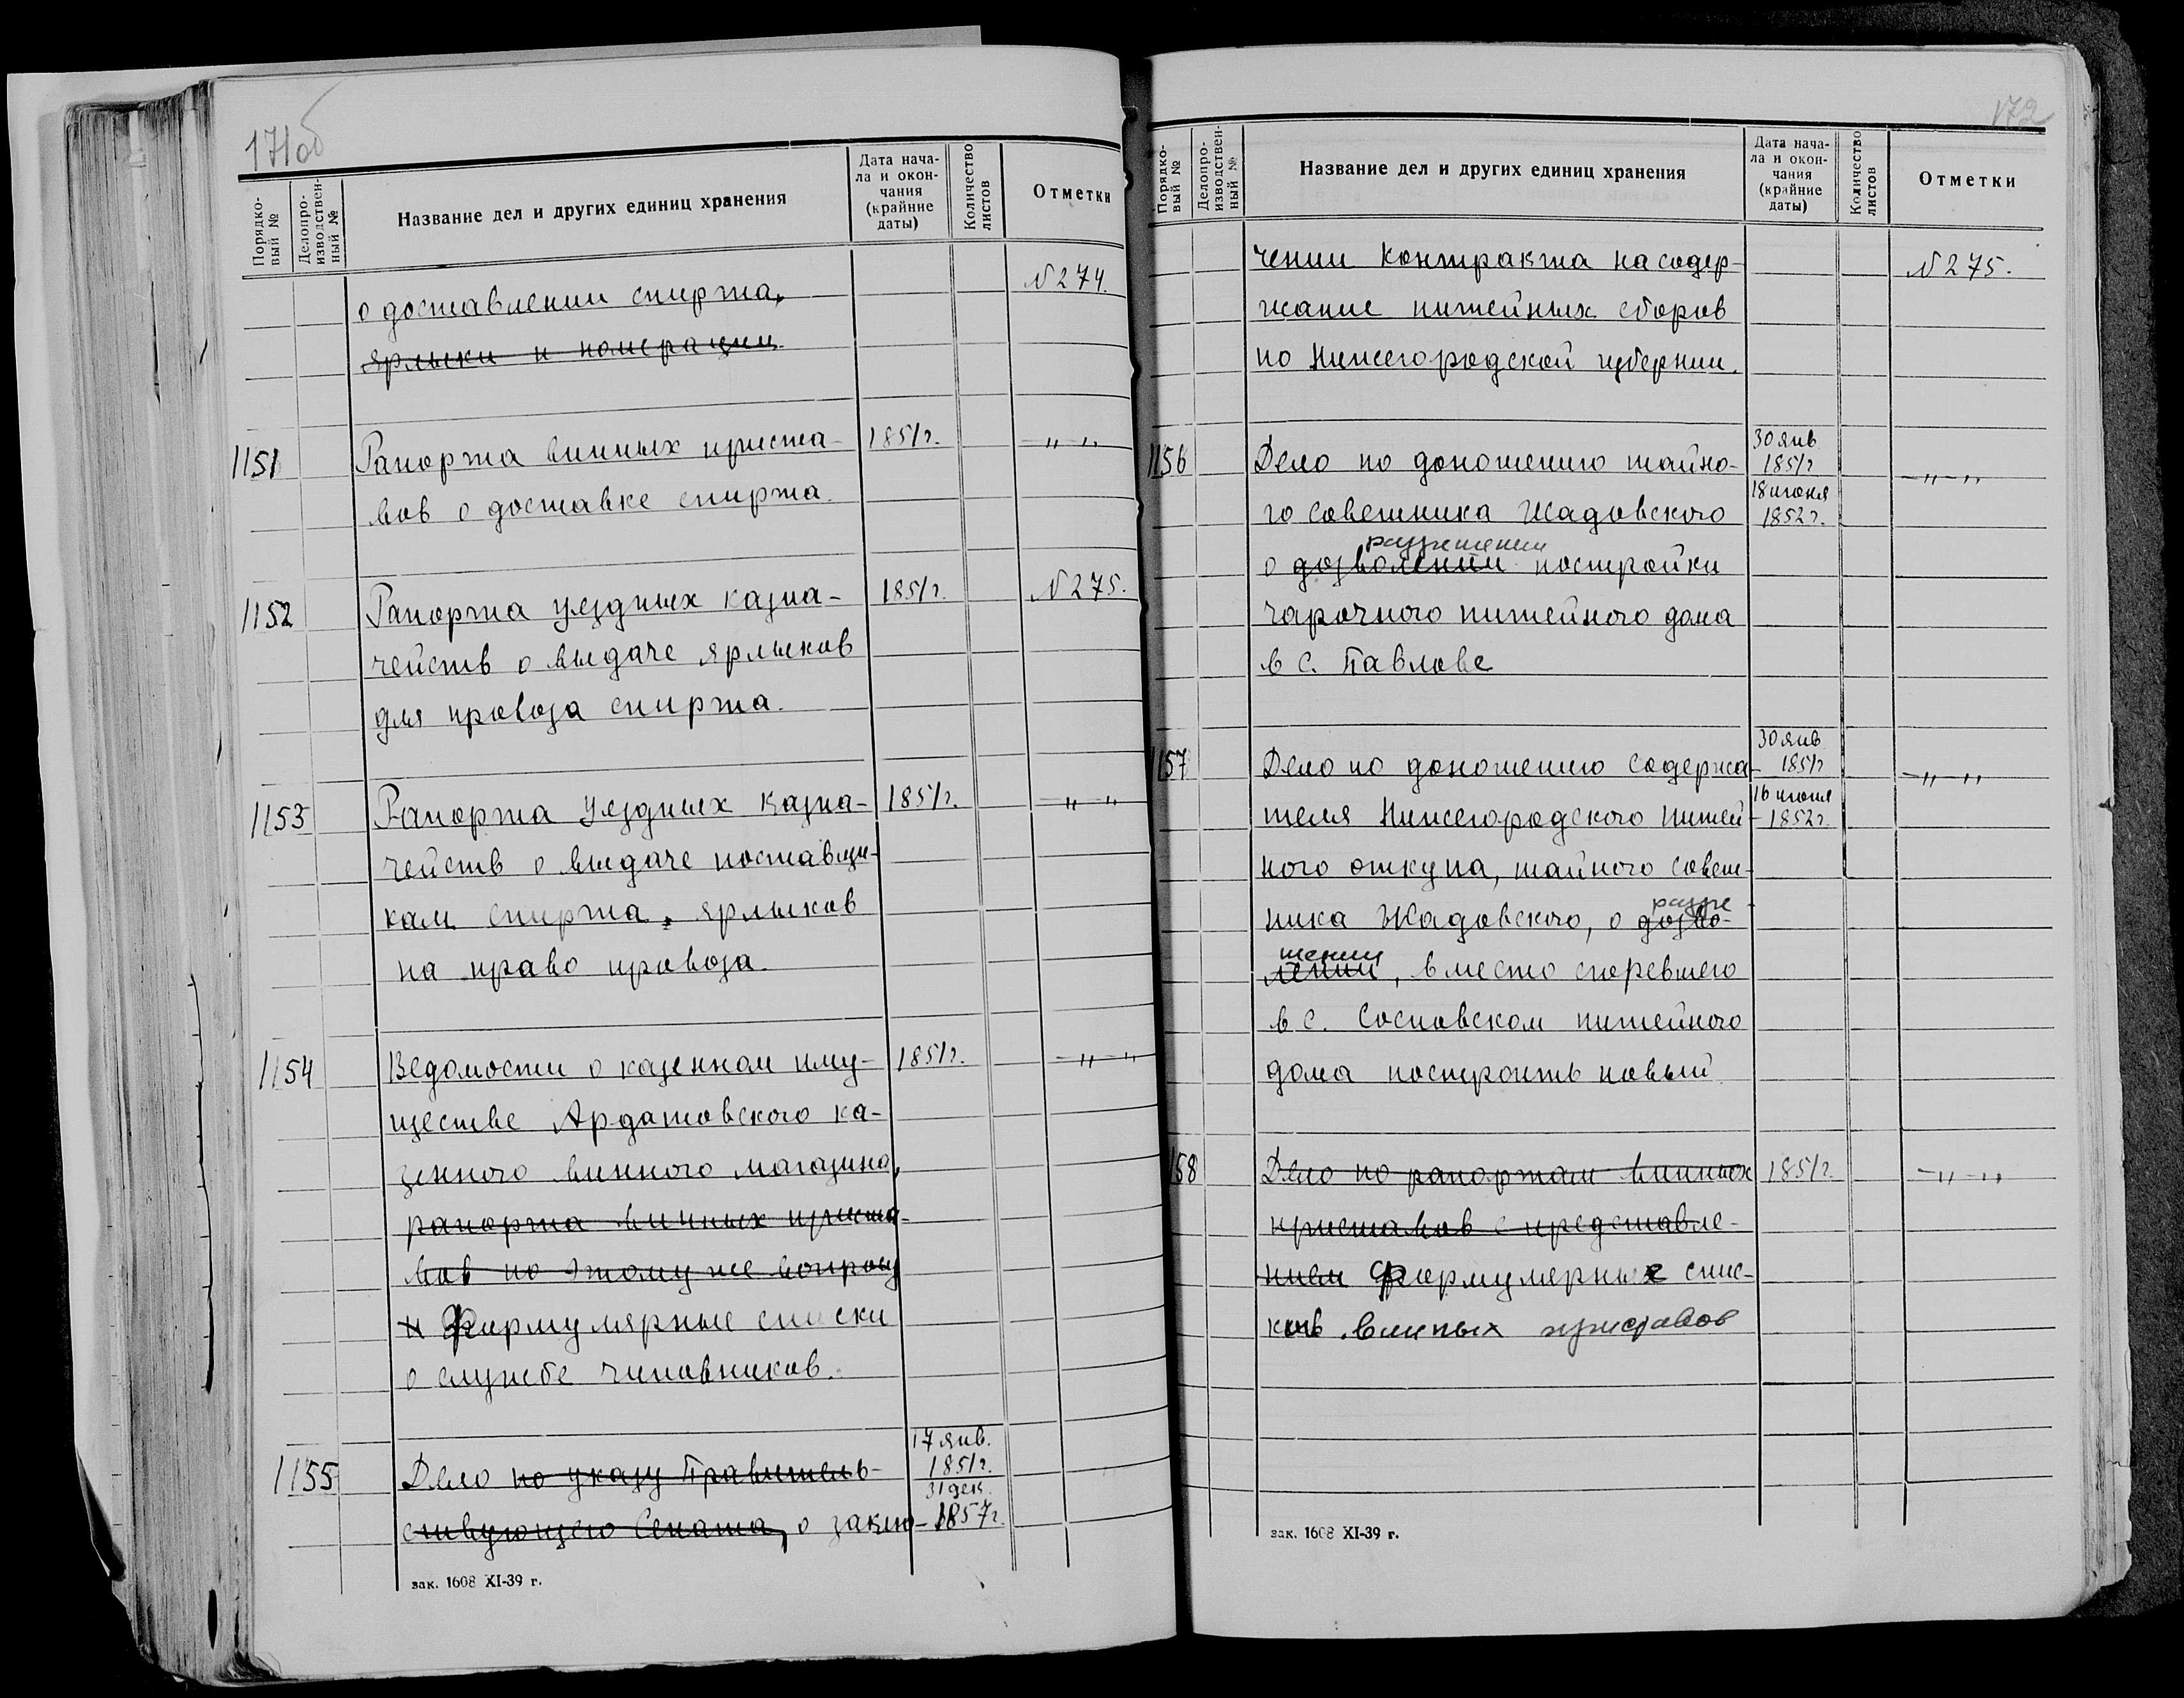 171об
Порядко-
вый №
Делопро-
изводствен-
ный №
Название дел и других единиц хранения
Дата нача-
ла и окон-
чания
(крайние
даты)
Количество
листов
Отметки
о доставлении спирта,
№ 274.
ярлыки и номерации
1151
Рапорта винных приста-
1851г.
—„—„
вов о доставке спирта.
1152
Рапорта уездных казна-
1851г.
№ 275.
чейств о выдаче ярлыков
для провоза спирта.
1153
Рапорта уездных казна-
1851г.
—„—„
чейств о выдаче поставщи-
кам спирта, ярлыков
на право провоза.
1154
Ведомости о казенном иму-
1851г.
—„—„
ществе Ардатовского ка-
зенного винного магазина,
рапорта винных приста-
вов по этому же вопросу
и Формулярные списки
о службе чиновников.
1155
Дело по указу Правитель-
17 янв.
1851г.
31 дек.
1857г.
ствующего Сената, о заклю-
зак. 1608 XI-39 г.
172
Порядко-
вый №
Делопро-
изводствен-
ный №
Название дел и других единиц хранения
Дата нача-
ла и окон-
чания
(крайние
даты)
Количество
листов
Отметки
чении контракта на содер-
№ 275.
жание питейных сборов
по Нижегородской губернии.
1156
Дело по доношению тайно-
30 янв
1851г
18 июня
1852г.
—„—„
го советника Жадовского
разрешении
о дозволении постройки
чарочного питейного дома
в с. Павлове
1157
Дело по доношению содержа-
30 янв
1851г
16 июня
1852г.
—„—„
теля Нижегородского питей-
ного откупа, тайного совет-
ника Жадовского, о дозво-
разре-
шении
лении, вместо сгоревшего
в с. Сосновском питейного
дома построить новый
158
Дело по рапортам винных
1851г.
—„—„
приставов с представле-
нием Формулярных спис-
ков винных приставов
зак. 1608 XI-39 г.